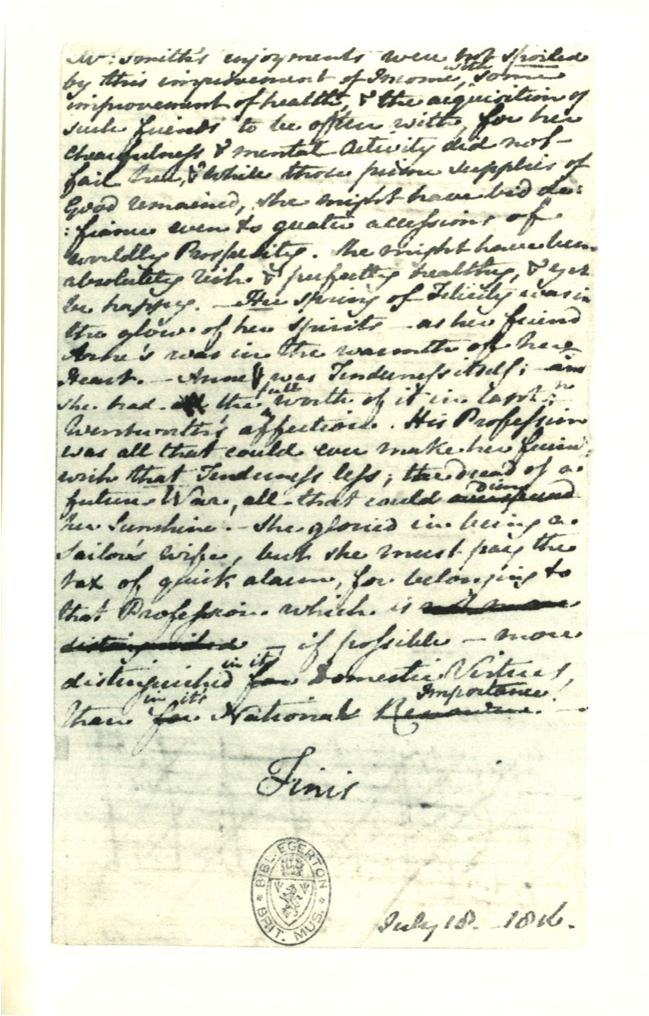 Mrs Smith's enjoyments were not spoiled
by this improvement of Income, with some
improvement of health, & the acquisition of
such friends to be often with, for her
chearfulness & mental Activity did not
fail her, & while those prime supplies of
Good remained, she might have bid de:
:fiance even to greater accessions of
worldly Prosperity. She might have been
absolutely rich & perfectly healthy, & yet
be happy. — Her spring of Felicity was in
the glow of her spirits — as her friend
Anne's was in the warmth of her
Heart. — Anne was Tenderness itself; — and
she had the full worth of it in Capt:n
Wentworth's affection. His Profession
was all that could ever make her friends
wish that Tenderness less; the dread of a
future War, all that could dim
her Sunshine. — She gloried in being a
Sailor's wife, but she must pay the
tax of quick alarm, for belonging to
that Profession which is not more
distinguished — if possible — more
distinguished in it's for Domestic Virtues,
than in it's for National Renown Importance. —
Finis
BIBL. EGERTON
BRIT. MUS.
July 18. — 1816.